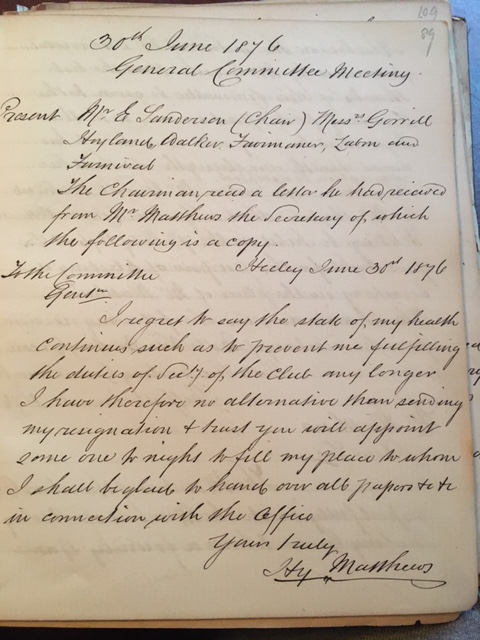 109
89
30th June 1876
General Committee Meeting.
Present Mr E Sanderson (Chair) Messrs Gorrill
Hoyland, Walker. and
Furnival
The Chairman read a letter he had recieved
from Mr Matthews the Secretary of which
the following is a copy.
To the Committee Heeley June 30th 1876
Gentn
I regret to say the state of my health
continues such as to prevent me fulfilling
the duties of Secy of the Club any longer
I have therefore no alternative than sending
my resignation & trust you will appoint
some one to night to fill my place to whom
I shall be glad to hand over all papers &c &c
in connection with the Office
Yours truly
Hy Matthews